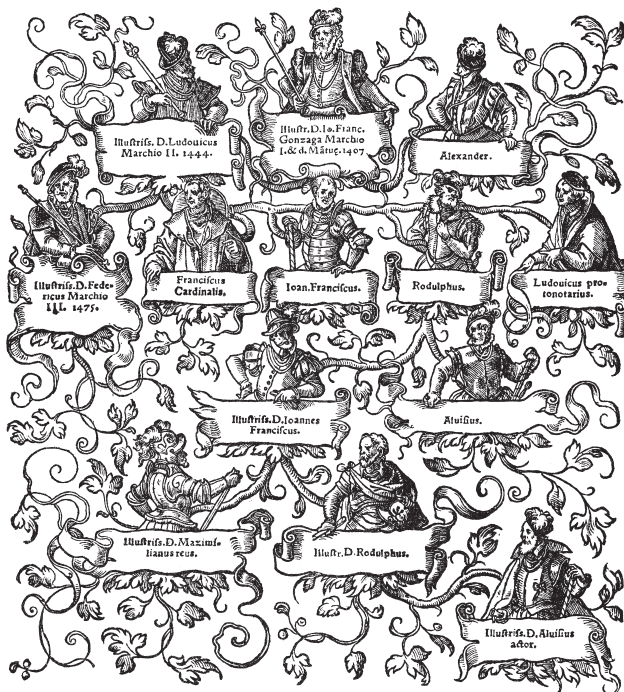 Illuſtriſs. D. Ludouicus
Marchio II. 1444.
Illuſtr. D. Io. Franc.
Gonzaga Marchio
I. & d. Mãtuę. 1407
Alexander.
Illuſtriſs. D. Fede-
ricus Marchio
III. 1475.
Franciſcus
Cardinalis.
Ioan. Franciſcus.
Rodulphus.
Ludouicus pro-
tonotarius.
Illuſtriſs. D. Ioannes
Franciſcus.
Aluiſius.
Illuſtriſs. D. Maximi-
lianus reus.
Illuſtr. D. Rodulphus.
Illuſtriſs. D. Aluiſius
actor.